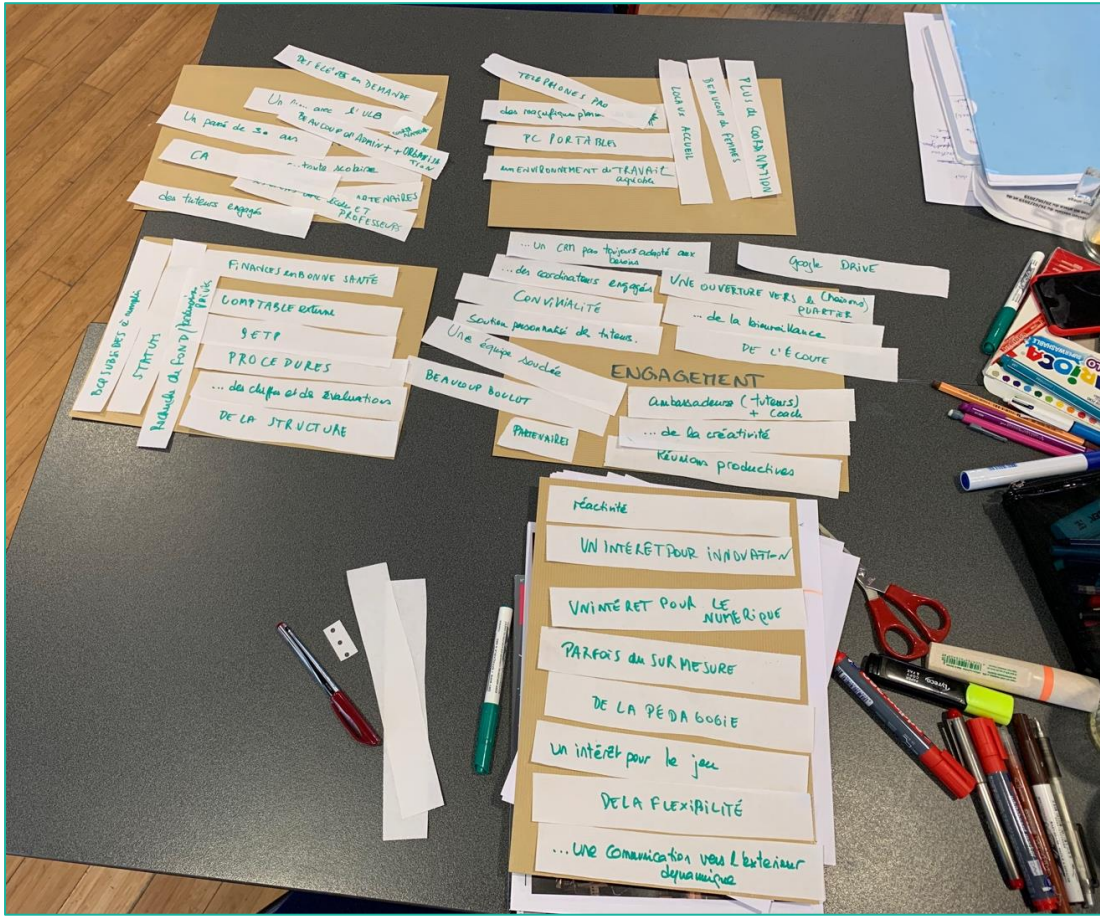 DES ÉLÈVES en DEMANDE
Un avec l'ULB
BEAUCOUP d'ADMIN + + ORGANISATION
Un passé de 30 ans
CA
...toute scolaire
PROFESSEURS
des tuteurs engagés
TELEPHONES PRO
des magnifiques
PC PORTABLES
un ENVIRONNEMENT du TRAVAIL
agréable
LOCAUX ACCUEIL
BEAUCOUP de FEMMES
PLUS de COORDINATION
BCP SUBSIDES à remplir
STATUTS
Recherche de FONDS
PRIVÉS
FINANCES en BONNE SANTÉ
COMPTABLE externe
9 ETP
PROCEDURES
... des chiffres et des évaluations
DE LA STRUCTURE
... un CRM pas toujours adapté aux
besoins
... des coordinateurs engagés
CONVIVIALITÉ
Soutien personnalisé de tuteurs.
Une équipe soudée
BEAUCOUP BOULOT
PARTENAIRES
Google DRIVE
UNE OUVERTURE VERS le
QUARTIER
... de la bienveillance
DE L'ÉCOUTE
ENGAGEMENT
ambassadeurs (tuteurs)
+ coach
... de la créativité
Réunions productives
réactivité
UN INTÉRET POUR INNOVATION
UN INTÉRET POUR LE
NUMÉRIQUE
PARFOIS du SUR MESURE
DE LA PÉDAGOGIE
un intérêt pour le jeu
DE LA FLEXIBILITÉ
... une communication vers l'exterieur
dynamique